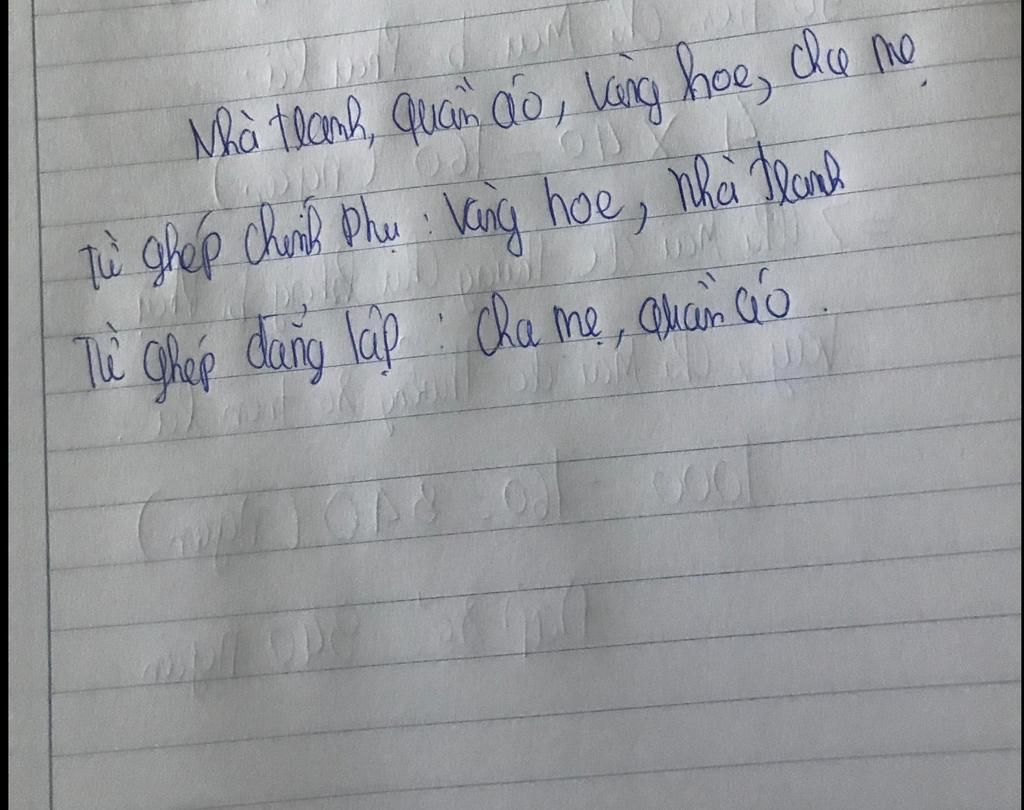 Nhà tranh, quần áo, vàng hoe, cha mẹ.
Từ ghép chính phụ : vàng hoe, nhà tranh
Từ ghép đẳng lập : cha mẹ, quần áo.